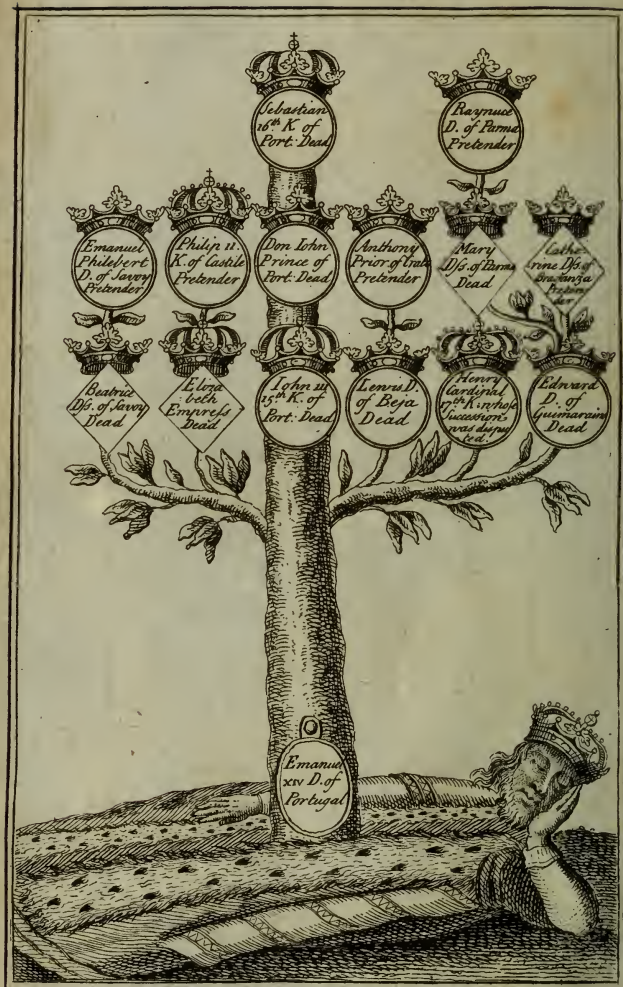 Sebastian
16th K. of
Port: Dead
Raynuce
D. of Parma
Pretender
Emanuel
Philebert
D. of Savoy
Pretender
Philip II.
K. of Castile
Pretender
Don Iohn
Prince of
Port: Dead
Anthony
Prior of Crato
Pretender
Mary
Dſs. of Parma
Dead
Cathe-
rine Dſs. of
Braganza
Preten-
der
Beatrice
Dſs. of Savoy
Dead
Eliza
beth
Empreſs
Dead
Iohn III
15th K. of
Port: Dead
Lewis D.
of Beja
Dead
Henry
Cardinal
17th K. in whose
Succession
was dispu
ted.
Edward
D. of
Guimarain
Dead
Emanuel
XIV D. of
Portugal